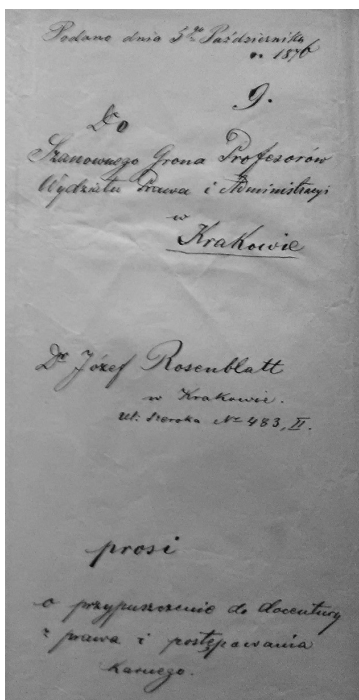 Podano dnia 5go Października
r. 1876
9.
Do
Szanownego Grona Profesorów
Wydziału Prawa i Administracyi
w
Krakowie
Dr Józef Rosenblatt
w Krakowie.
ul. Szeroka No 433, II.
prosi
o przypuszczenie do docentury
z prawa i postępowania
karnego.